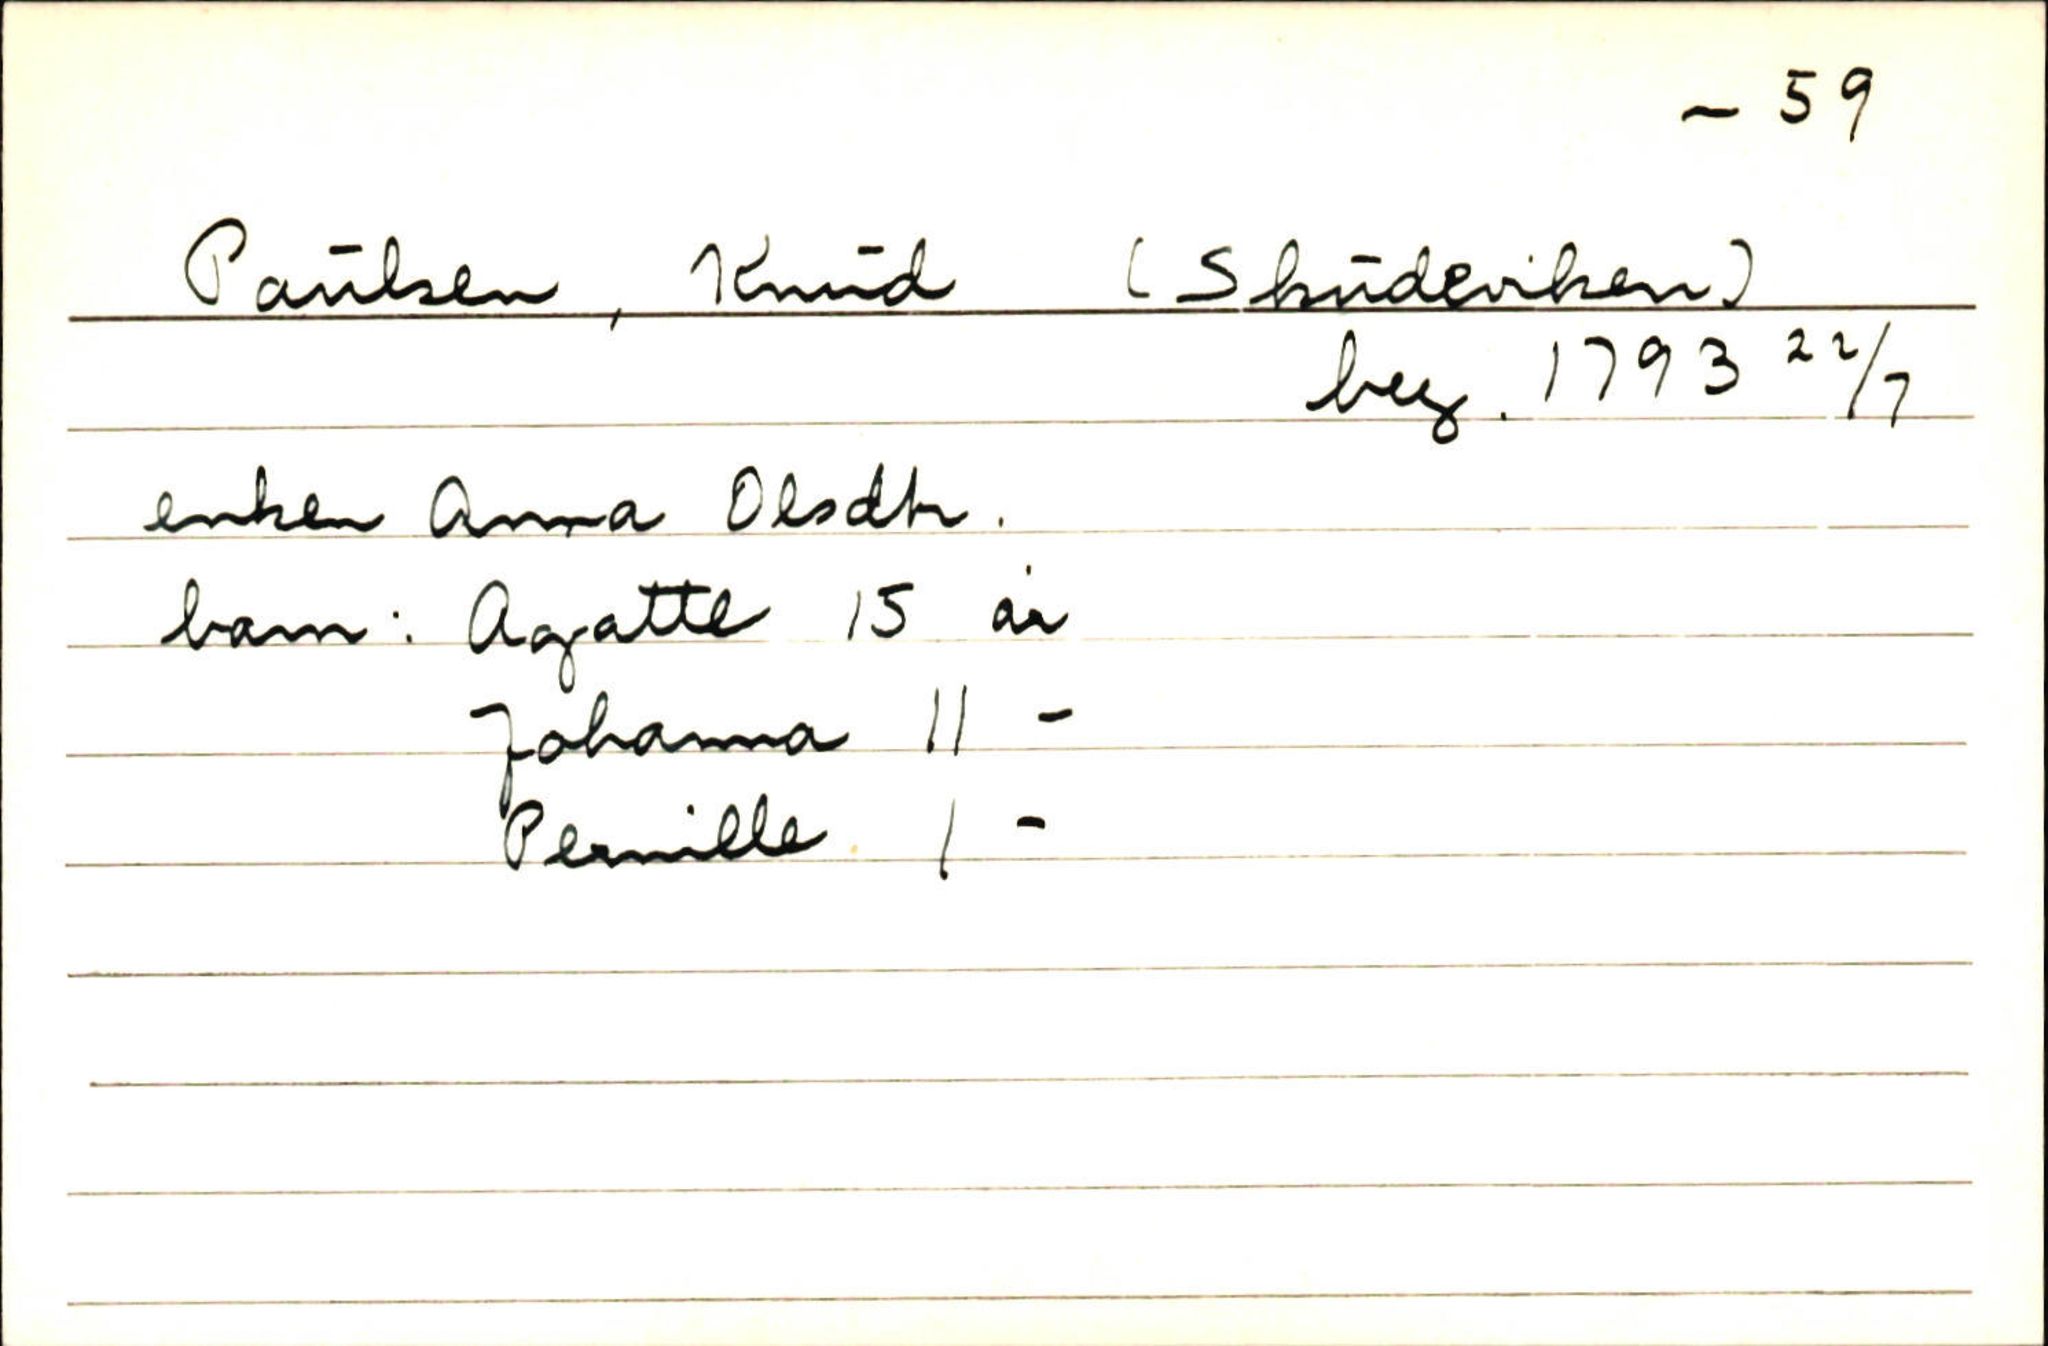 ~ 59
Paulsen, Knud (Skudeviken)
beg. 1793 22/7
enken Anna Olsdtr.
barn: Agatte 15 år
Johanna 11 -
Pernille 1 -